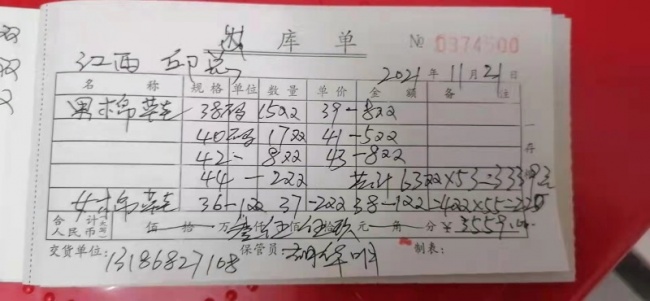 库 单 № 0374500
江西 邱总
2021年11月21日
名 称 规格 单位 数量 单价 金额 备 注
男木棉鞋 38码 15双 39-8双
40码 17双 41-5双
42- 8双 43-8双
44-2双 共计63双×53=3339元
女木棉鞋 36-1双 37-2双 38-1双-4双×55=220
合计人民币 佰 拾 万 仟 佰 拾 元 角 分 ¥3559.00
交货单位: 13186827108 保管员: 制表: